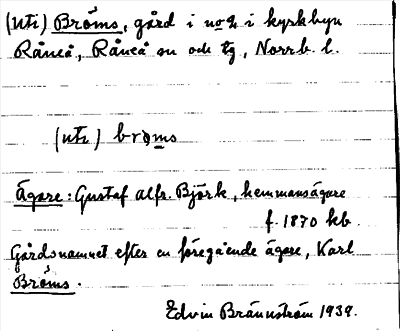 (uti) Bröms, gård i no 2 i kyrkbyn
Råneå, Råneå sn och tg, Norrb. l.
(uti) brøms
Ägare: Gustaf Alfr. Björk, hemmansägare
f. 1870 kb.
Gårdsnamnet efter en föregående ägare, Karl
Bröms.
Edvin Brännström 1939.